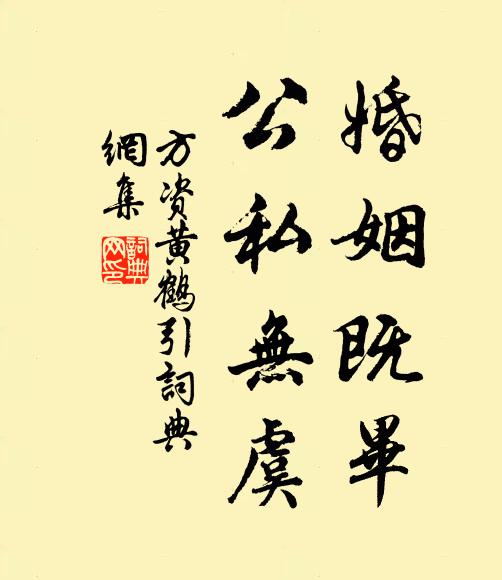 婚姻既畢
公私無虞
方資黃鶴引詞典
網集
詞典
网印